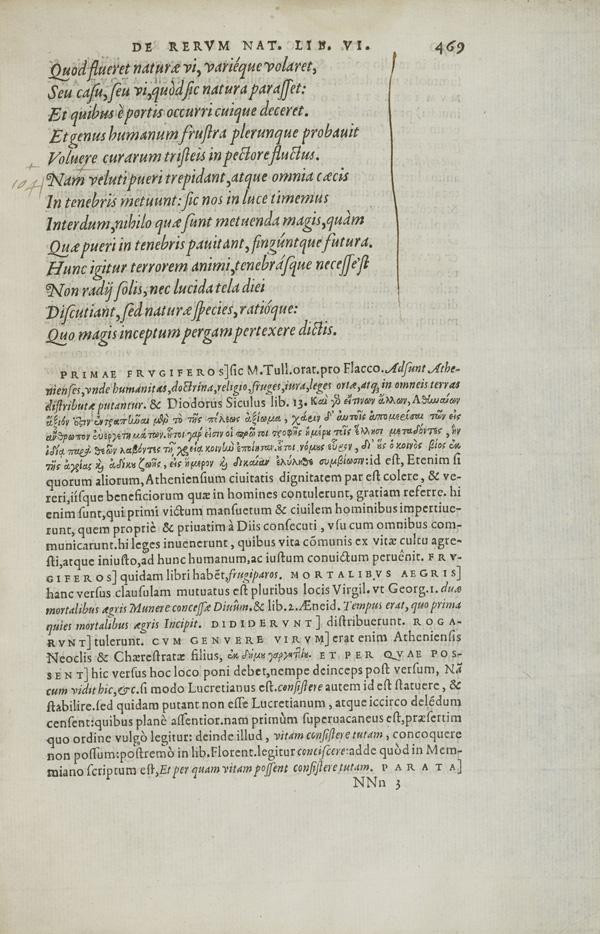 DE RERVM NAT. LIB. VI. 469
Quod flueret naturæ vi, variéque volaret,
Seu casu, seu vi, quòd sic natura parasset:
Et quibus è portis occurri cuique deceret.
Et genus humanum frustra plerunque probauit
Voluere curarum tristeis in pectore fluctus.
104 Nam veluti pueri trepidant, atque omnia cæcis
In tenebris metuunt: sic nos in luce timemus
Interdum, nihilo quæ sunt metuenda magis, quàm
Quæ pueri in tenebris pauitant, fingúntque futura.
Hunc igitur terrorem animi, tenebrásque necesse'st
Non radij solis, nec lucida tela diei
Discutiant, sed naturæ species, ratióque:
Quo magis inceptum pergam pertexere dictis.
PRIMAE FRVGIFEROS] sic M. Tull. orat. pro Flacco. Adsunt Athe-
nienses, vnde humanitas, doctrina, religio, fruges, iura, leges ortæ, atq; in omneis terras
distributæ putantur. & Diodorus Siculus lib. 13. Καὶ γὸ εἰ τινων ἄλλων, Ἀθηναίων
ἄξιόν ὅτιν τῆς πόλεως ἀξίωμα, χάριν δ' αὐτοῖς τῶν εἰς
ἄνθρωπον ὗτοι γάρ εἰσιν οἱ πρῶτοι τροφῆς ἡμέρου τοῖς ἕλλησι μεταδόντες, ἣν
ἰδίᾳ παρὰ θεῶν λαβόντες τῇ χρείᾳ κοινὴν ἐποίησαν. ὗτοι νόμους εὗρον, δι' ὧν ὁ κοινὸς βίος ἐκ
τῆς ἀγρίας ἀδίκου ζωῆς, εἰς ἥμερον δικαίαν ἐλήλυθε συμβίωσιν: id est, Etenim si
quorum aliorum, Atheniensium ciuitatis dignitatem par est colere, & ve-
reri, iisque beneficiorum quæ in homines contulerunt, gratiam referre. hi
enim sunt, qui primi victum mansuetum & ciuilem hominibus impertiue-
runt, quem propriè & priuatim à Diis consecuti, vsu cum omnibus com-
municarunt. hi leges inuenerunt, quibus vita cõmunis ex vitæ cultu agre-
sti, atque iniusto, ad hunc humanum, ac iustum conuictum peruênit. FRV-
GIFEROS] quidam libri habẽt, frugiparos. MORTALIBVS AEGRIS]
hanc versus clausulam mutuatus est pluribus locis Virgil. vt Georg. 1. duæ
mortalibus ægris Munere concessæ Diuûm. & lib. 2. Æneid. Tempus erat, quo prima
quies mortalibus ægris Incipit. DIDIDERVNT] distribuerunt. ROGA-
RVNT] tulerunt. CVM GENVERE VIRVM] erat enim Atheniensis
Neoclis & Chærestratæ filius, ἐκ δήμου γαργηττίου. ET PER QVAE POS-
SENT] hic versus hoc loco poni debet, nempe deinceps post versum, Nã
cum vidit hic, &c. si modo Lucretianus est. consistere autem id est statuere, &
stabilire. sed quidam putant non esse Lucretianum, atque iccirco delẽdum
censent: quibus planè assentior. nam primùm superuacaneus est, præsertim
quo ordine vulgò legitur: deinde illud, vitam consistere tutam, concoquere
non possum: postremò in lib. Florent. legitur conciscere: adde quòd in Mem-
miano scriptum est, Et per quam vitam possent consistere tutam. PARATA]
NNn 3